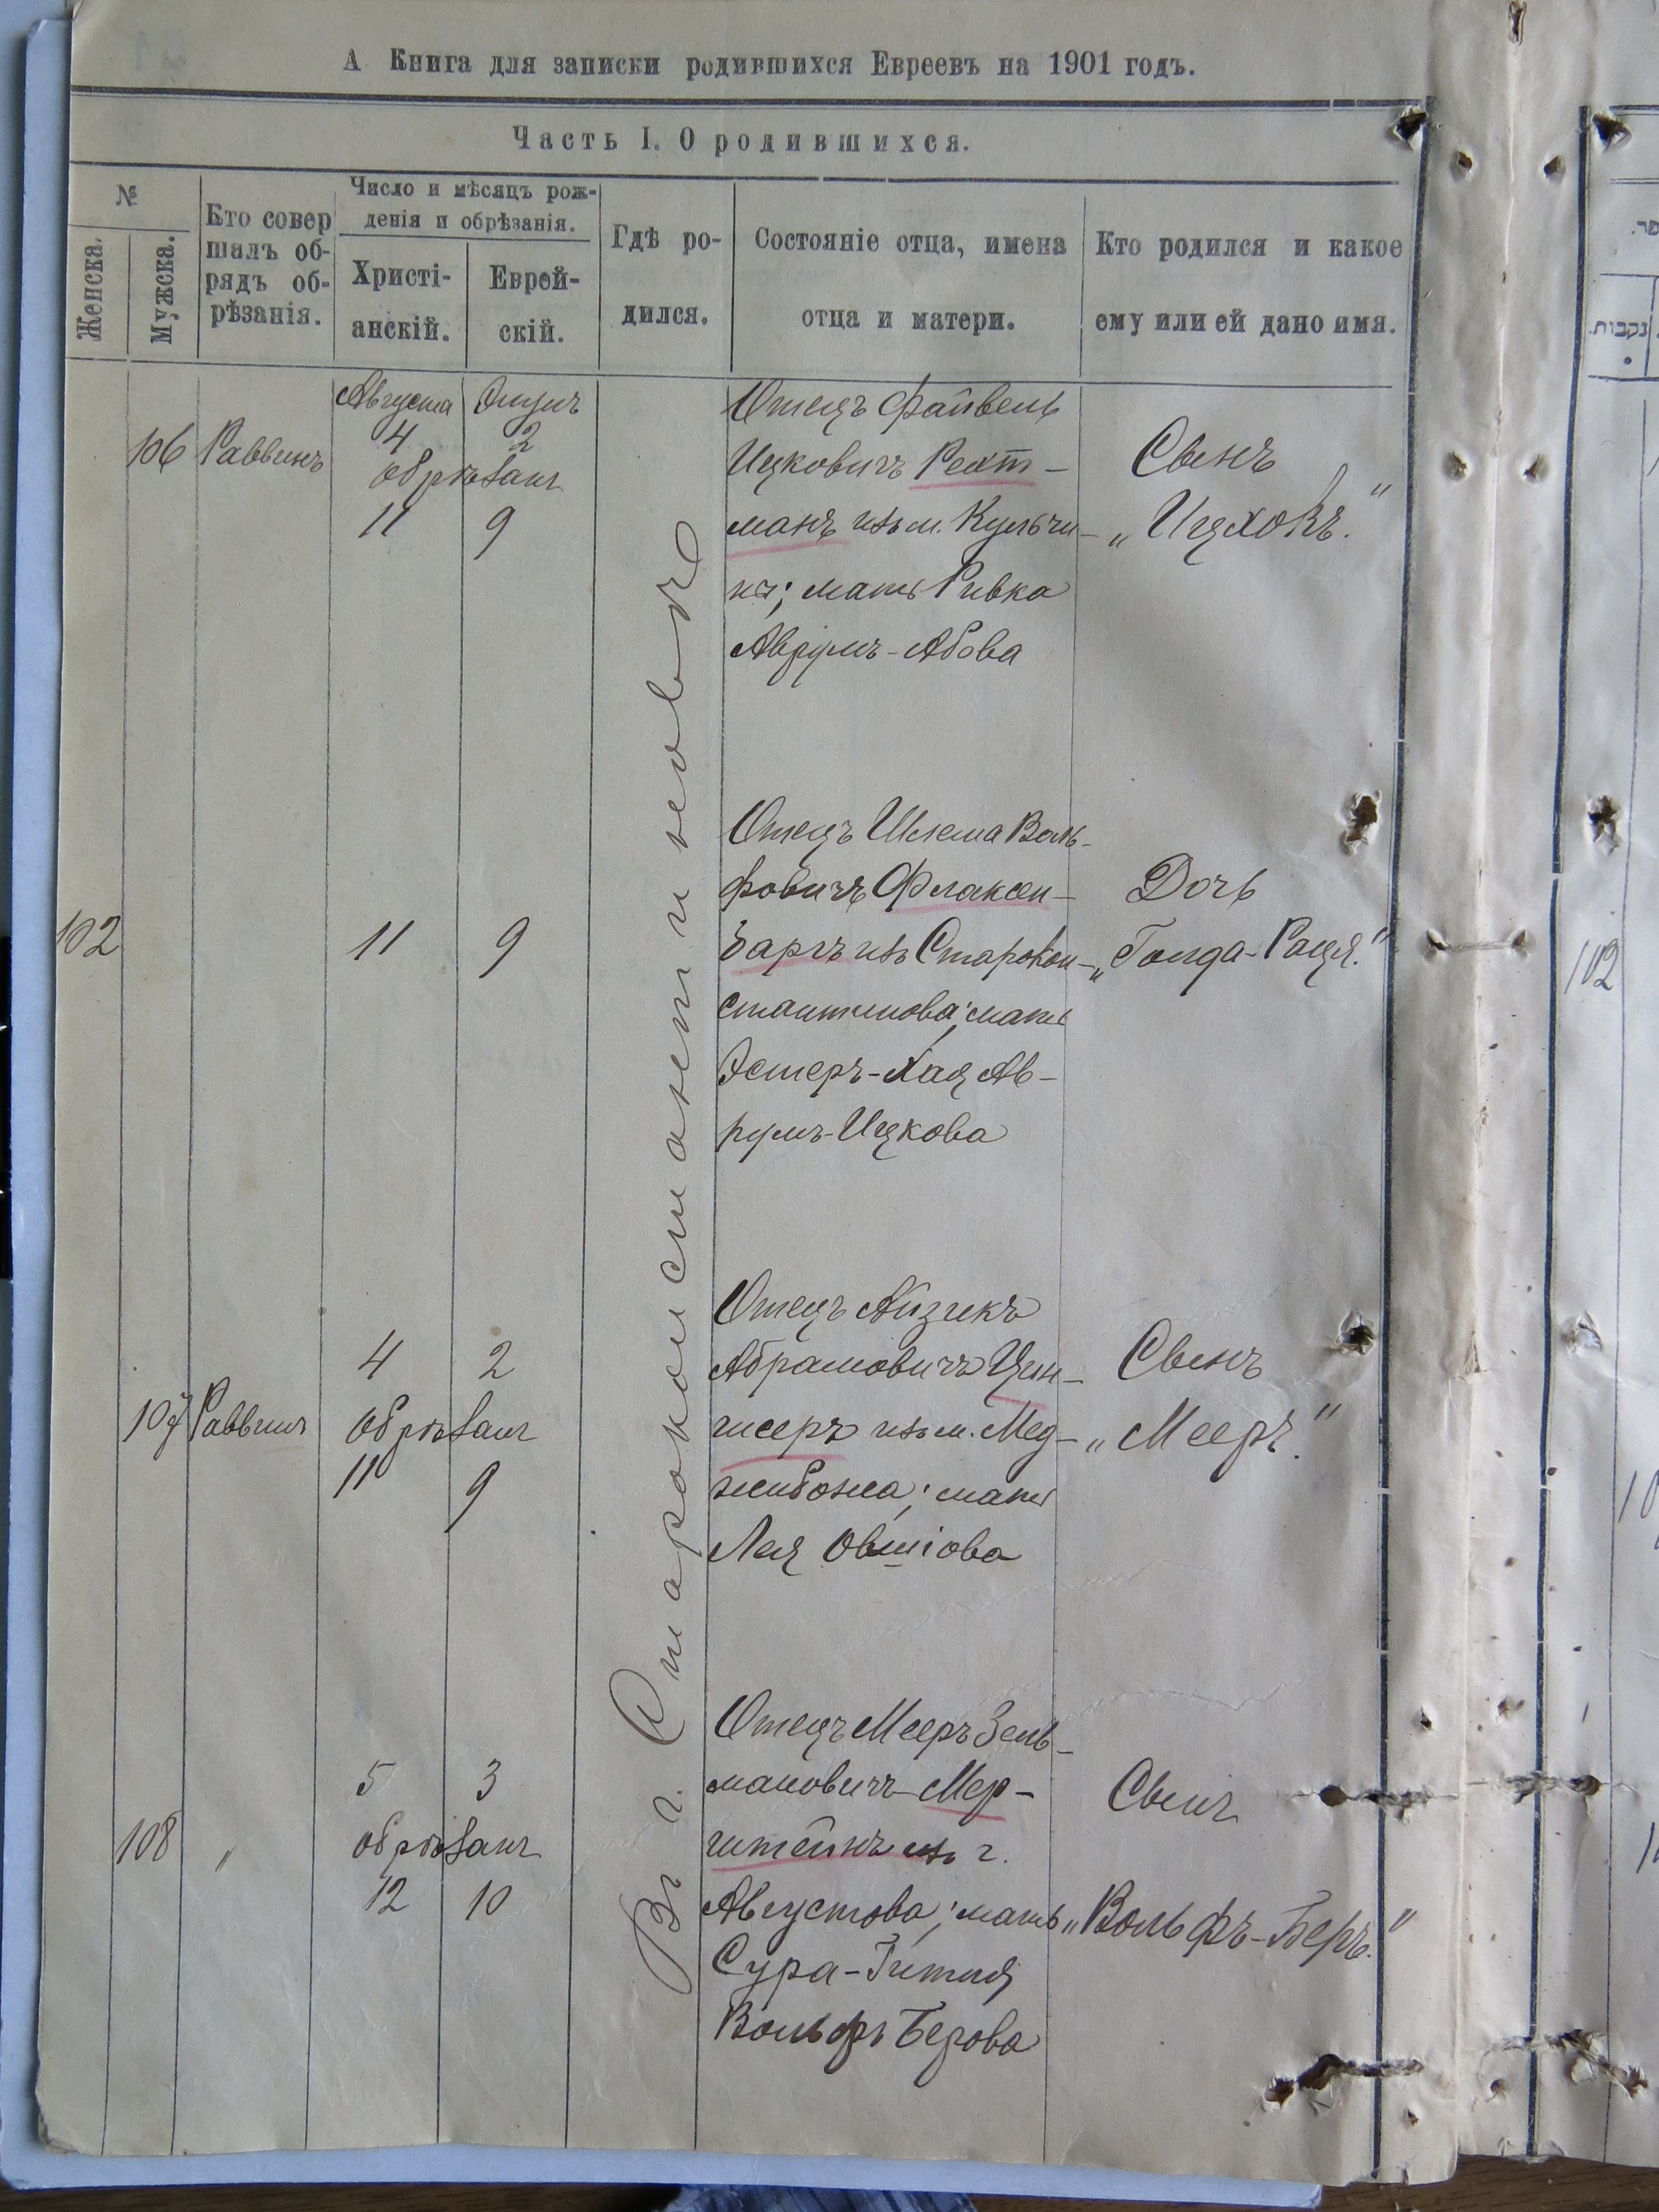 А Книга для записки родившихся Евреевъ на 1901 годъ.
Часть I. О родившихся.
№
Женска.
Мужска.
Кто совер
шалъ об-
рядъ об-
рѣзанія.
Число и мѣсяцъ рож-
денія и обрѣзанія.
Христі-
анскій.
Еврей-
скій.
Гдѣ ро-
дился.
Состояніе отца, имена
отца и матери.
Кто родился и какое
ему или ей дано имя.
נקבות.
Въ г. Староконстантиновѣ
106 Раввинъ
Августа
4 2
обрѣзанъ
11 9
Отецъ Файвель
Ицковичъ Рехт-
манъ изъ м. Кульчи-
нъ; мать Ривка
Аврумъ-Абова
Сынъ
„Ицхокъ."
102
11 9
Отецъ Шлема Воль-
фовичъ Флаксен-
баргъ изъ Старокон-
стантинова; мать
Эстеръ-Хая Ав-
румъ-Ицкова
Дочь
„Голда-Раця."
102
107 Раввинъ
4 2
обрѣзанъ
11 9
Отецъ Айзикъ
Абрамовичъ Цин-
гисеръ изъ м. Мед-
жибожа; мать
Лея Овшіова
Сынъ
„Мееръ."
108 "
5 3
обрѣзанъ
12 10
Отецъ Мееръ Зель-
мановичъ Мер-
штейнъ изъ г.
Августова; мать
Сура-Гитля
Вольфъ Берова
Сынъ
„Вольфъ-Беръ."